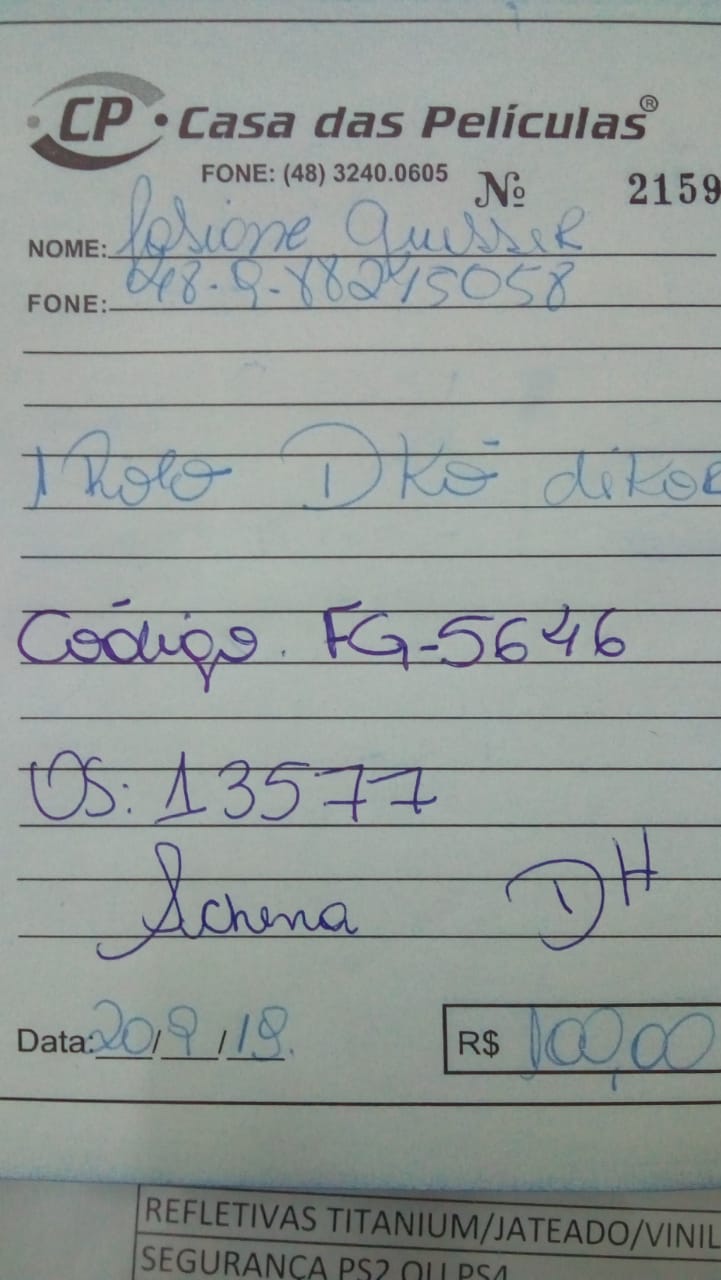 CP • Casa das Películas®
FONE: (48) 3240.0605 Nº 2159
NOME: Josiane Guesser
FONE: 48.9.88245058
1 Rolo DKō dikor
Código. FG-5646
OS: 13577
Schena DH
Data: 20/9/19.
R$ 100,00
REFLETIVAS TITANIUM/JATEADO/VINIL
SEGURANÇA PS2 OU PS4